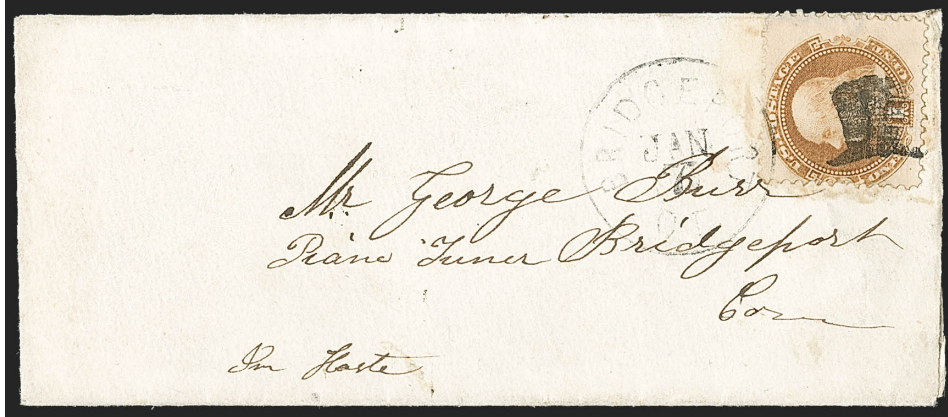 BRIDGEP
JAN
Mr. George Burr
Piano Tuner Bridgeport
Conn
In Haste